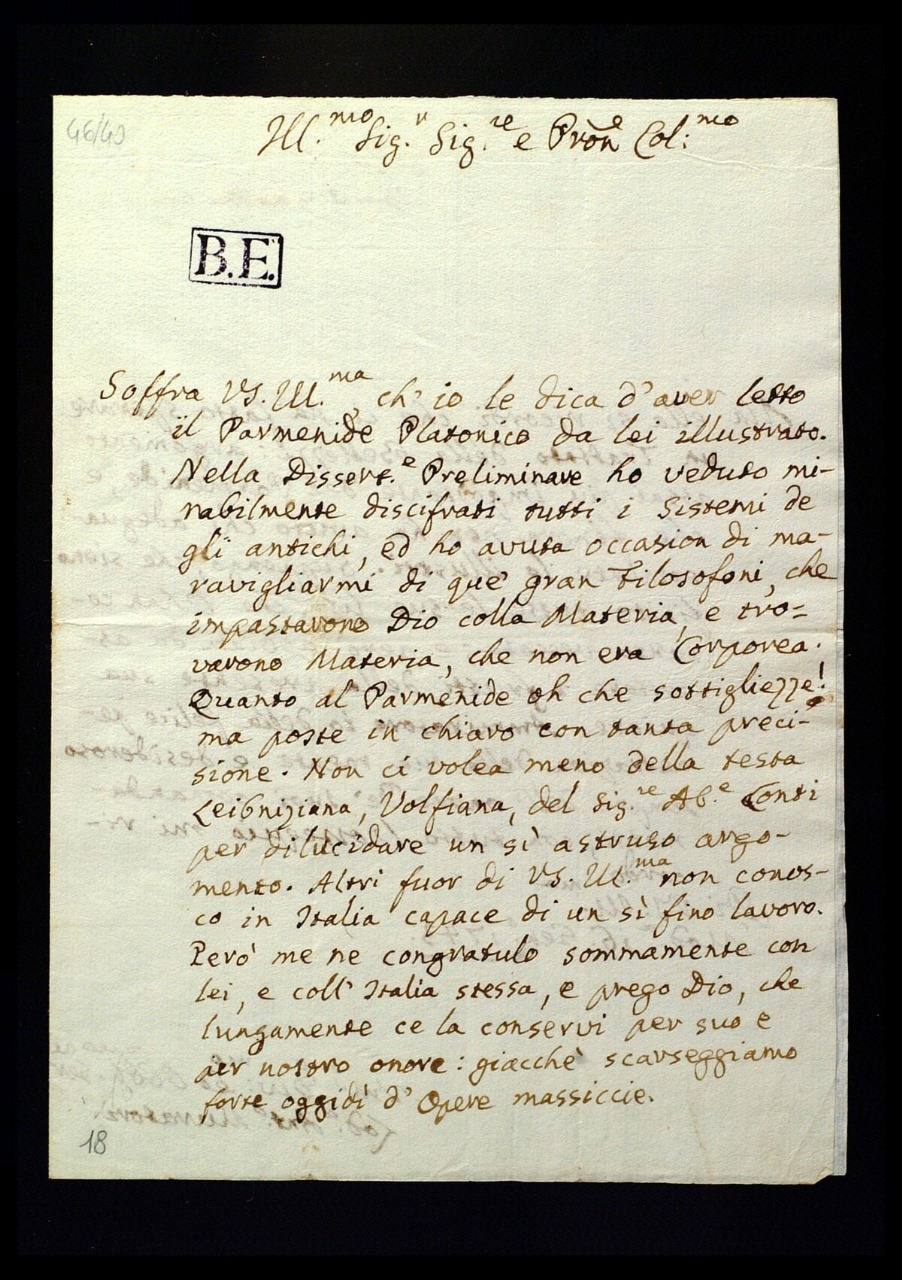 46/49
Ill.mo Sig.r Sig.re e Pron̄e Col:mo
B.E.
Soffra VS. Ill.ma, ch' io le dica d'aver letto
il Parmenide Platonico da lei illustrato.
Nella Dissert.e Preliminare ho veduto mi-
rabilmente discifrati tutti i Sistemi de
gli antichi, ed ho avuta occasion di ma-
ravigliarmi di que' gran Filosofoni, che
impastarono Dio colla Materia, e tro-
varono Materia, che non era Corporea.
Quanto al Parmenide oh che sottigliezze!
ma poste in chiaro con tanta preci-
sione. Non ci volea meno della testa
Leibniziana, Volfiana, del Sig.re Ab.e Conti
per dilucidare un sì astruso argo-
mento. Altri fuor di VS. Ill.ma non conos-
co in Italia capace di un sì fino lavoro.
Però me ne congratulo sommamente con
lei, e coll' Italia stessa, e prego Dio, che
lungamente ce la conservi per suo e
per nostro onore: giacchè scarseggiamo
forte oggidì d' Opere massiccie.
18